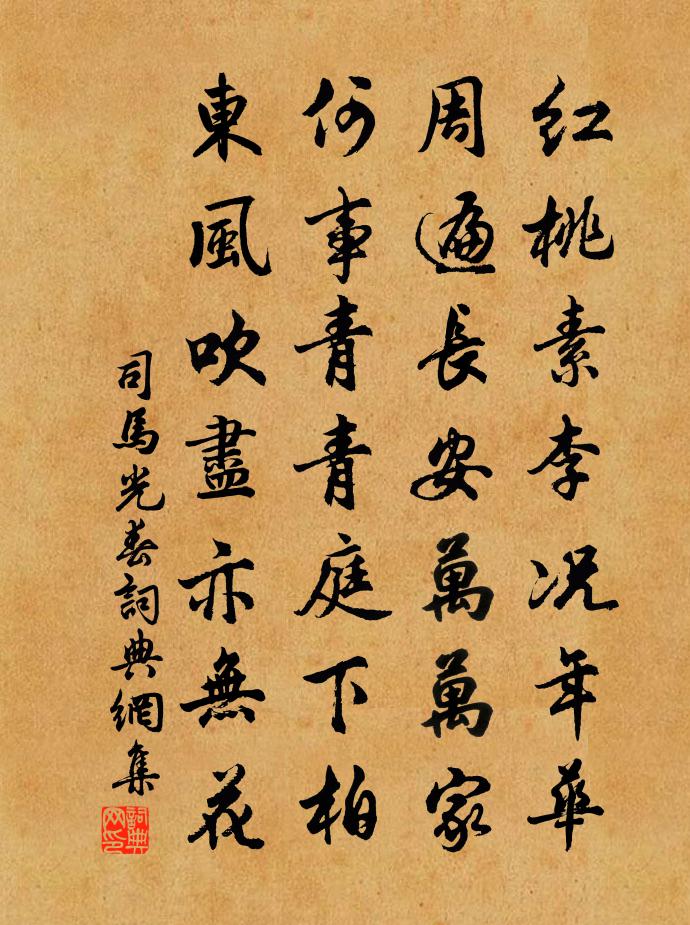 红桃素李况年華
周遍長安萬萬家
何事青青庭下柏
東風吹盡亦無花
司馬光春詞典網集
詞典网印